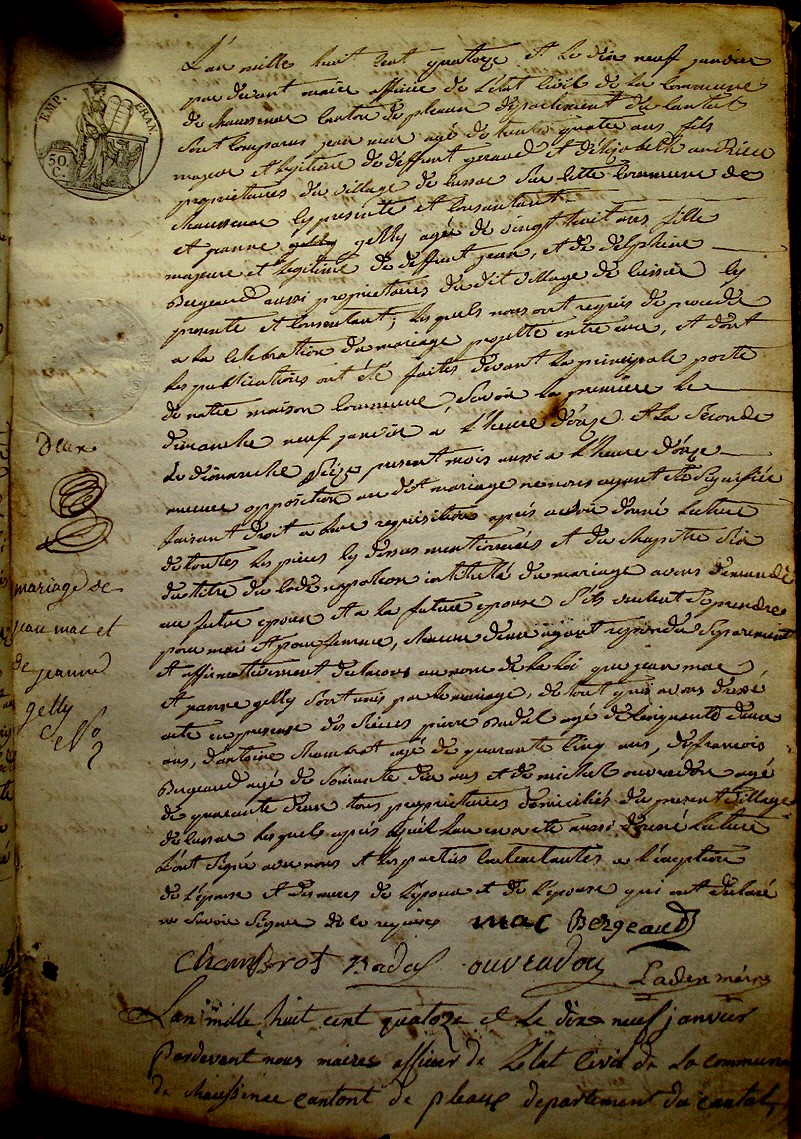 EMP. FRAN.
50 C.
L'an mille huit cent quatorze et le dix neuf janvier
par devant maire officier de l'état Civil de la Commune
de Chaussenac canton de pleaux département du Cantal
sont Comparus jean mac agé de trente quatre ans fils
majeur et légitime de deffunt geraud et d'élizabeth
propriétaires du village de lussac sur cette Commune de
Chaussenac Cy présente et Consentante
et jeanne gelly agée de vingt huit ans fille
majeure et légitime de deffunt jean, et de delphine
Bergeaud aussi propriétaires du dit village de lussac Cy
présente et Consentante; lesquels nous ont requis de procéder
a la Célébration du mariage projetté entre eux, et dont
les publications ont été faites devant la principale porte
de notre maison Commune, Savoir la première le
dimanche neuf janvier a l'heure d'onze et la Seconde
le dimanche Seize présent mois aussi a l'heure d'onze
aucune opposition au dit mariage ne nous ayant été Signifiée
faisant droit a leur requisition après avoir donné lecture
de toutes les pièces Cy dessus mentionnées et du chapitre Six
du titre du Code napoléon intitulé du mariage avons demandé
au futur epoux et a la future epouse S'ils veulent Se prendre
pour mari et pour femme, chacun d'eux ayant repondu Séparement
et affirmativement declarons au nom de la loi que jean mac
et jeanne gelly Sont unis par le mariage, de tout quoi avons dressé
acte en presence des Sieurs pierre Badal agé de Cinquante deux
ans, d'antoine Chambrot agé de quarante Cinq ans, de francois
Bergeaud agé de Soixante dix ans et de michel ouvradou agé
de quarante deux tous propriétaires domiciliés du present village
de lussac lesquels après qu'il leur en a été aussi donné lecture
l'ont Signé avec nous et les parties Contractantes a l'éxception
de l'épouse et des meres de l'époux et de l'épouse qui ont declaré
ne Savoir Signer de ce requises mac Bergeaud
Chambrot Badal ouvradou
Laden maire
Deux
mariage de
jean mac et
de jeanne
gelly
L'an mille huit cent quatorze et le dix neuf janvier
Pardevant nous maire officier de l'état Civil de la commune
de Chaussenac cantont de pleaux departement du cantal